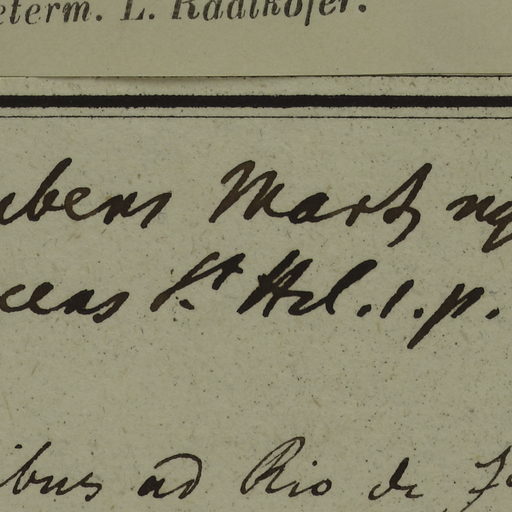 eterm. L. Radlkofer.
ubens Mart
ceus St Hil. 1. p.
ibus ad Rio de J